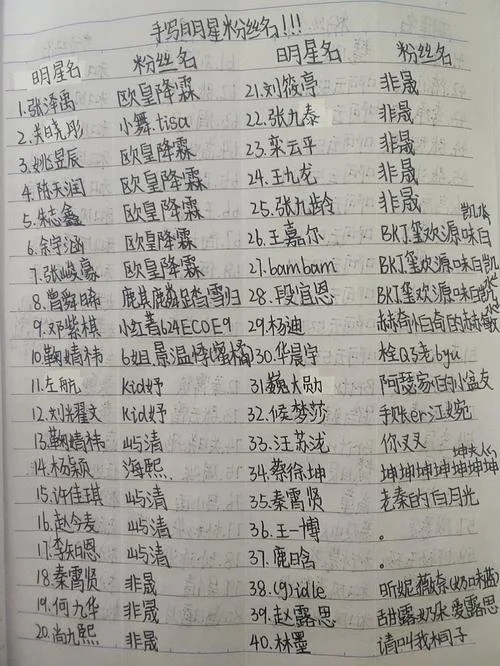 手写明星粉丝名!!!
明星名 粉丝名 明星名 粉丝名
1.张泽禹 欧皇降霖 21.刘筱亭 非晟
2.关晓彤 小舞.tisa 22.张九泰 非晟
3.姚昱辰 欧皇降霖 23.栾云平 非晟
4.陈天润 欧皇降霖 24.王九龙 非晟
5.朱志鑫 欧皇降霖 25.张九龄 非晟
6.余宇涵 欧皇降霖 26.王嘉尔 BKJ筐欢源味白凯㐅
7.张峻豪 欧皇降霖 27.bambam BKJ筐欢源味白凯
8.曾舜晞 鹿其鹿踏雪归 28.段宜恩 BKJ筐欢源味白凯
9.邓紫棋 小红薯624ECOE9 29.杨迪 赫奇怕奇的赫敏
10.鞠婧祎 6姐景温悸(蜜橘) 30.华晨宇 栓Q3老6yu
11.左航 kid妤 31.魏大勋 阿瑟家的小盆友
12.刘耀文 kid妤 32.侯梦莎 手机ker江婉
13.鞠婧祎 屿清 33.汪苏泷 你叉叉
14.杨颖 海熙. 34.蔡徐坤 坤坤坤坤坤坤坤坤夫人
15.许佳琪 屿清 35.秦霄贤 老秦的白月光
16.赵今麦 屿清 36.王一博 。
17.李知恩 屿清 37.鹿晗 。
18.秦霄贤 非晟 38.(g)idle 昕妮薇(奶味)
19.何九华 非晟 39.赵露思 甜露奶水爱露思
20.尚九熙 非晟 40.林墨 请叫我相子